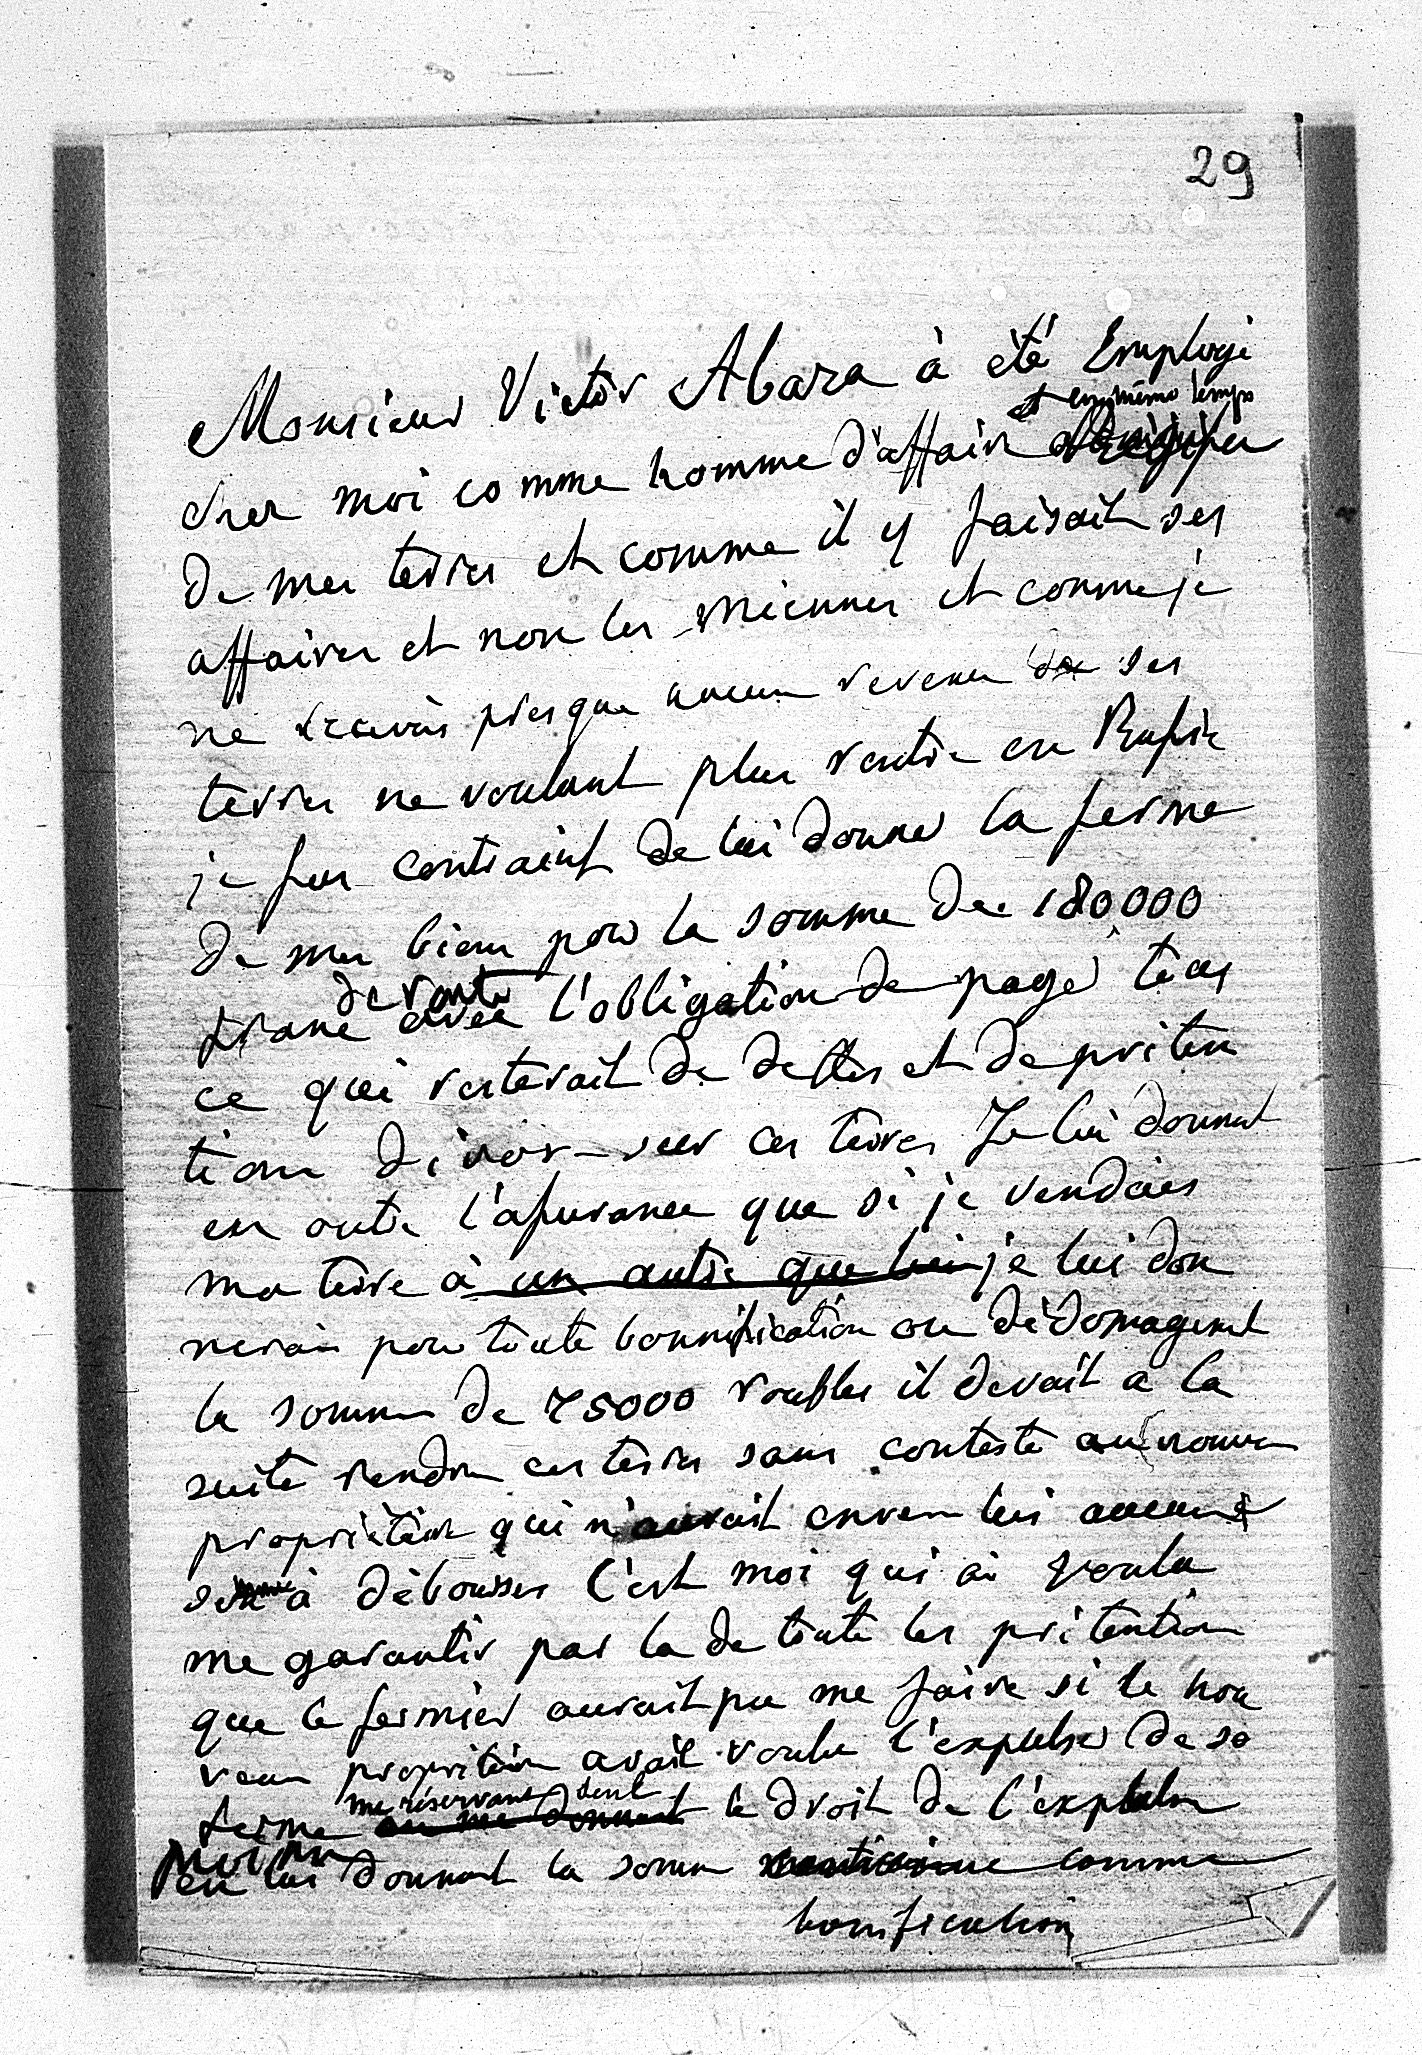 29
Monsieur Victor Abaza à été Employé
et en même temps
chez moi comme homme d'affair
de mes terres et comme il y faisait ses
affaires et non les miennes et comme je
ne trouvais presque aucun revenu de ses
terres ne voulant plus rentrer en Russie
je fus contraint de lui donner la ferme
de mes biens pour la somme de 180000
de rente
franc avec l'obligation de payer tous
ce qui resterait de dettes et de préten
tions d'ivoir sur ces terres Je lui donnat
en outre l'assurance que si je vendais
ma terre à un autre que lui je lui don
nerais pour toute bonnification ou dédomagemt
la somme de 75000 roubles il devait a la
suite rendre ces terres sans conteste au nouveau
propriétaire qui n'aurait envers lui aucune
somme à débousser C'est moi qui ai voulu
me garantir par la de toute les prétention
que le fermier aurait pu me faire si le nou
veau propriétaire avait voulu l'expulser de sa
me réservant
ferme ou me donnant le droit de l'expulser
en lui donnant la somme comme
bonification